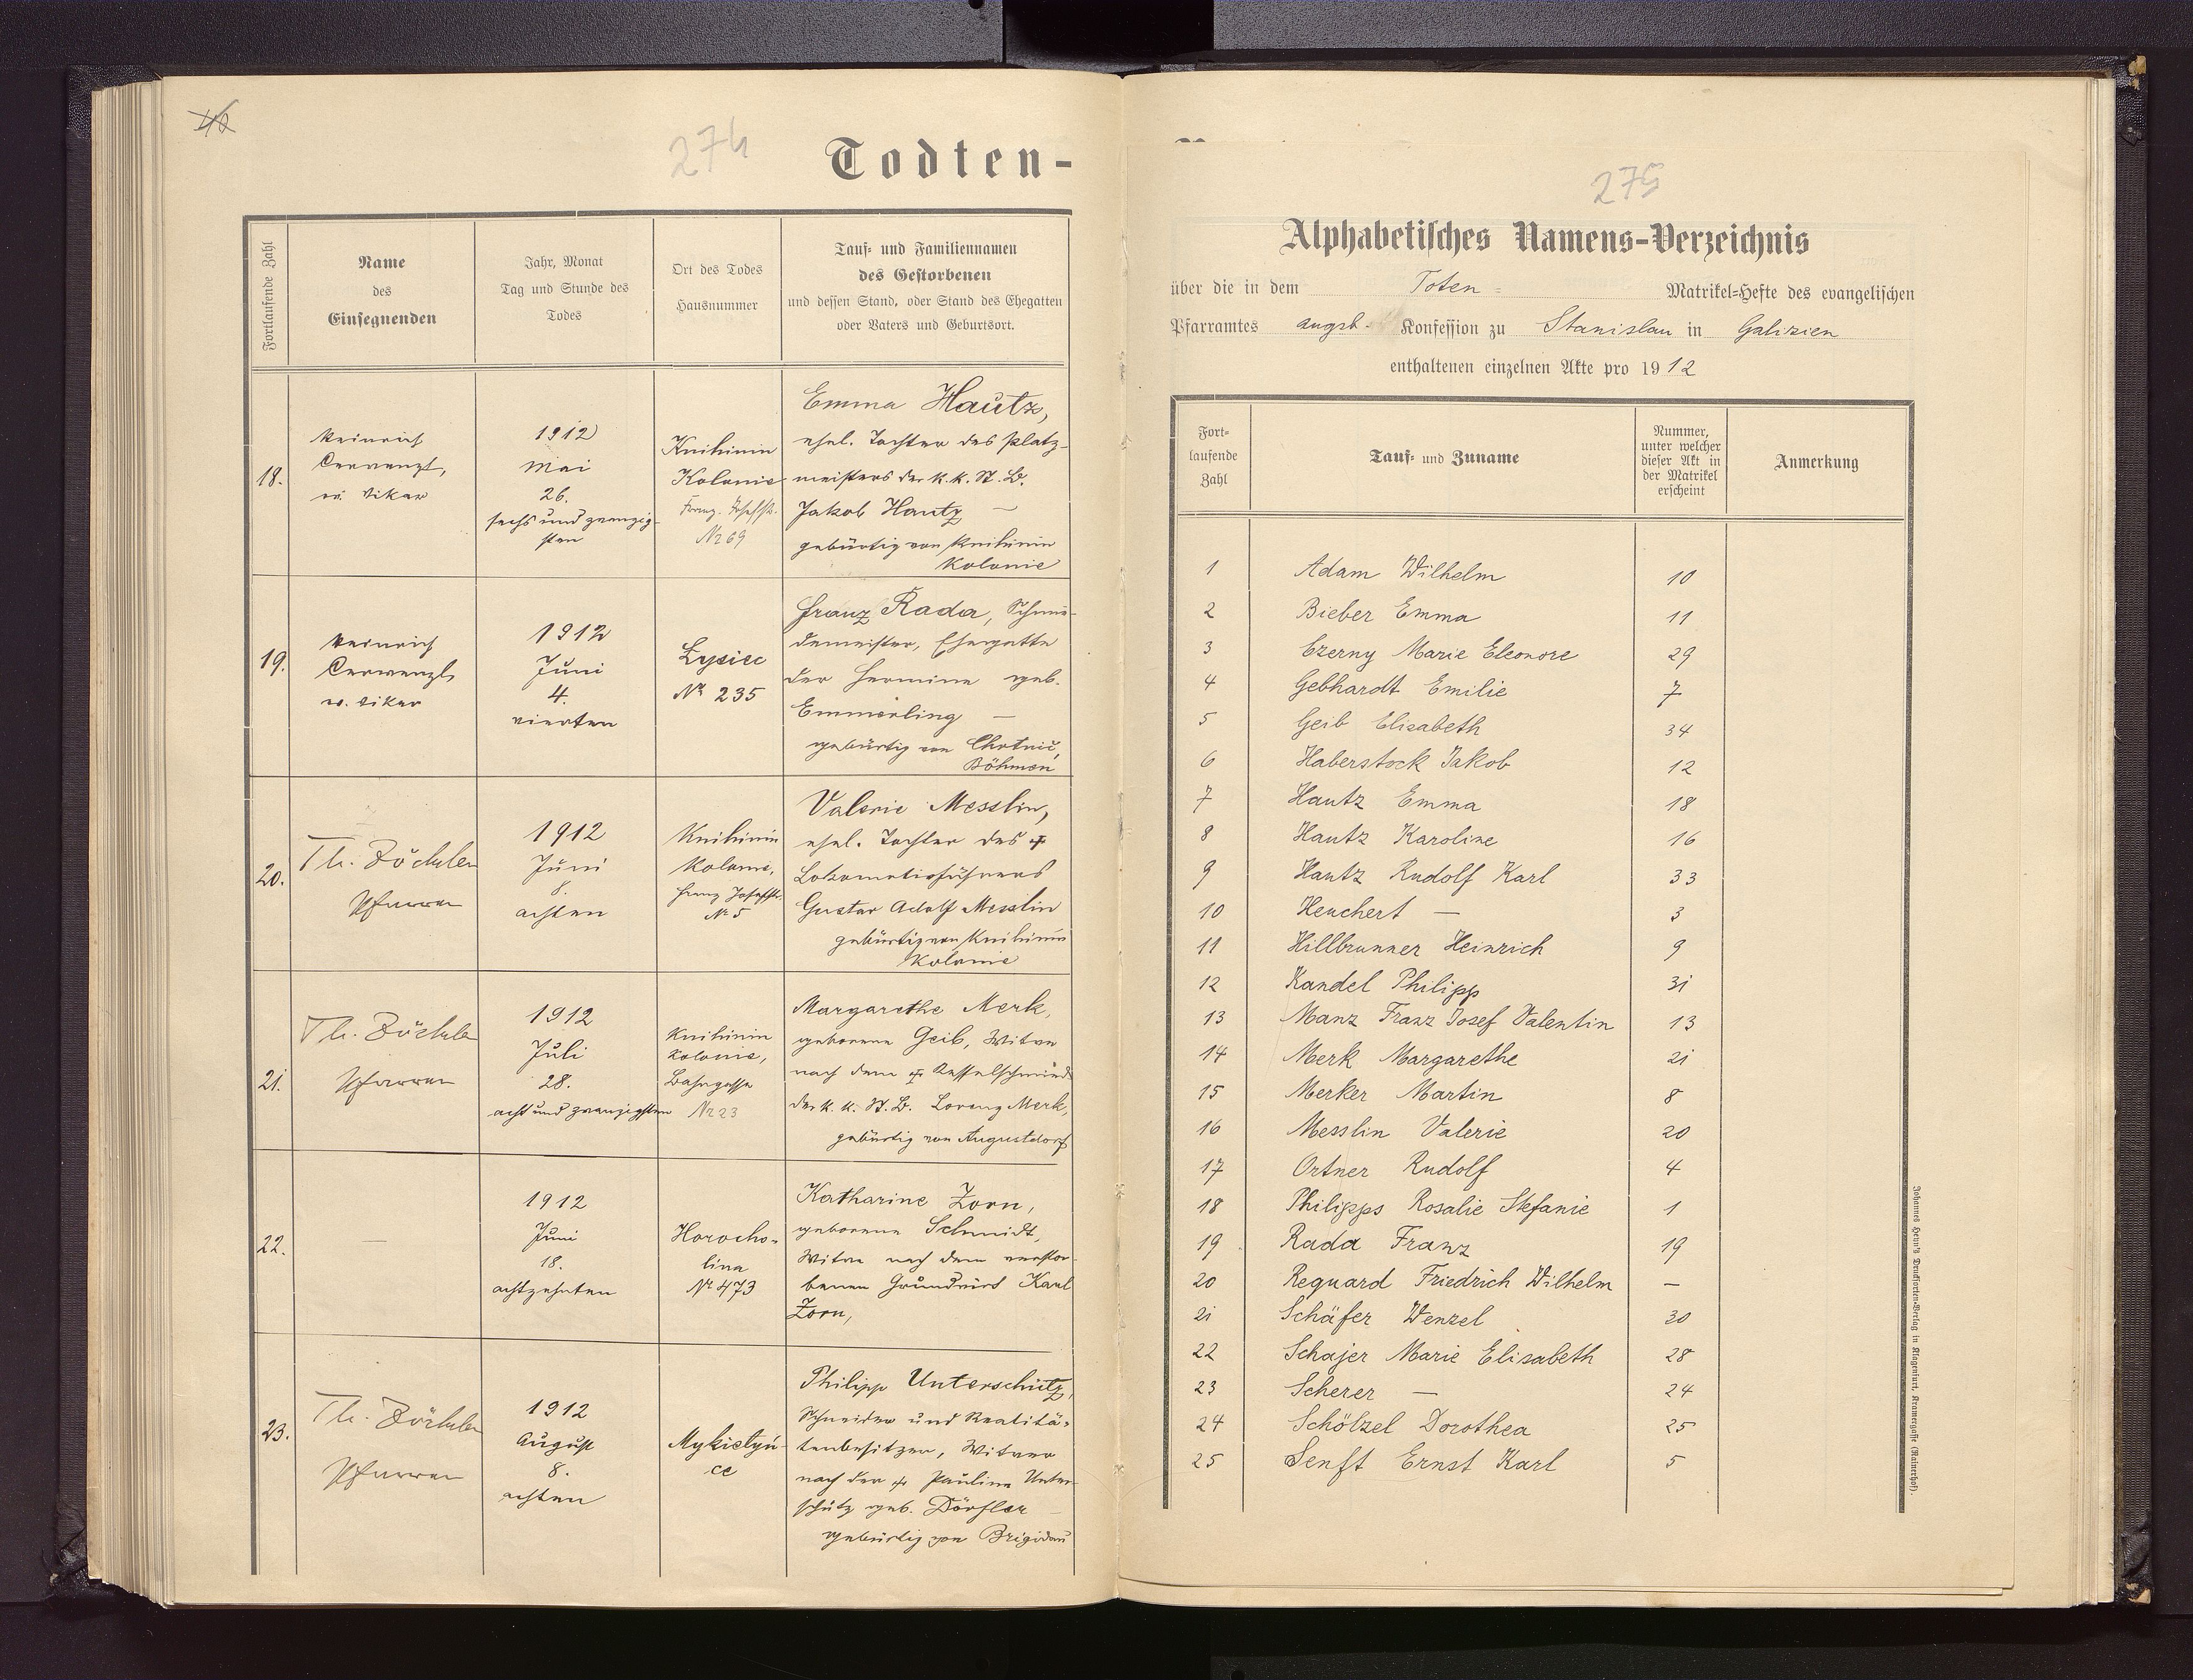 46
274
Todten-
Fortlaufende Zahl
Name
des
Einsegnenden
Jahr, Monat
Tag und Stunde des
Todes
Ort des Todes
Hausnummer
Tauf- und Familiennamen
des Gestorbenen
und dessen Stand, oder Stand des Ehegatten
oder Vaters und Geburtsort.
18.
Heinrich
Vikar
1912
Mai
26.
sechs und zwanzig-
sten
Knihinin
Kolonie
Franz-Josefstr.
Nr 69
Emma Hautz,
ehel. Tochter des Platz-
meisters der k.k. St. B.
Jakob Hautz —
gebürtig von Knihinin
Kolonie
19.
Heinrich
Vikar
1912
Juni
4.
vierten
Lysiec
Nr 235
Franz Rada, Schmie-
demeister, Ehegatte
der Hermine geb.
Emmerling —
gebürtig von Chotnič,
Böhmen
20.
Th. Zöckler
Pfarrer
1912
Juni
8.
achten
Knihinin
Kolonie,
Franz Josefstr.
Nr 5
Valerie Messlin,
ehel. Tochter des †
Lokomotivführers
Gustav Adolf Messlin
gebürtig von Knihinin
Kolonie
21.
Th. Zöckler
Pfarrer
1912
Juli
28.
acht und zwanzigsten
Knihinin
Kolonie,
Bahngasse
Nr 23
Margarethe Merk,
geborene Geib, Witwe
nach dem † Kesselschmied
der k. k. St. B. Lorenz Merk,
gebürtig von Augustdorf
22.
—
1912
Juni
18.
achtzehnten
Horocho-
lina
Nr 473
Katharine Zorn,
geborene Schmidt,
Witwe nach dem verstor-
benen Grundwirt Karl
Zorn,
23.
Th. Zöckler
Pfarrer
1912
August
8.
achten
Mykietyń-
ce
Philipp Unterschütz,
Schneider und Realitä-
tenbesitzer, Witwer
nach der † Pauline Unter-
schütz geb. Dörfler —
gebürtig von Brigidau
275
Alphabetisches Namens-Verzeichnis
über die in dem Toten- Matrikel-Hefte des evangelischen
Pfarramtes augsb. Konfession zu Stanislau in Galizien
enthaltenen einzelnen Akte pro 1912
Fort-
laufende
Zahl
Tauf- und Zuname
Nummer,
unter welcher
dieser Akt in
der Matrikel
erscheint
Anmerkung
1 Adam Wilhelm 10
2 Bieber Emma 11
3 Czerny Marie Eleonore 29
4 Gebhardt Emilie 7
5 Geib Elisabeth 34
6 Haberstock Jakob 12
7 Hautz Emma 18
8 Hautz Karoline 16
9 Hautz Rudolf Karl 33
10 Heuchert — 3
11 Hillbrunner Heinrich 9
12 Kandel Philipp 31
13 Manz Franz Josef Valentin 13
14 Merk Margarethe 21
15 Merker Martin 8
16 Messlin Valerie 20
17 Ortner Rudolf 4
18 Philipps Rosalie Stefanie 1
19 Rada Franz 19
20 Reguard Friedrich Wilhelm —
21 Schäfer Wenzel 30
22 Schajer Marie Elisabeth 28
23 Scherer — 24
24 Schölzel Dorothea 25
25 Senft Ernst Karl 5
Johannes Heyn's Drucksorten-Verlag in Klagenfurt, Kramergasse (Rainerhof).